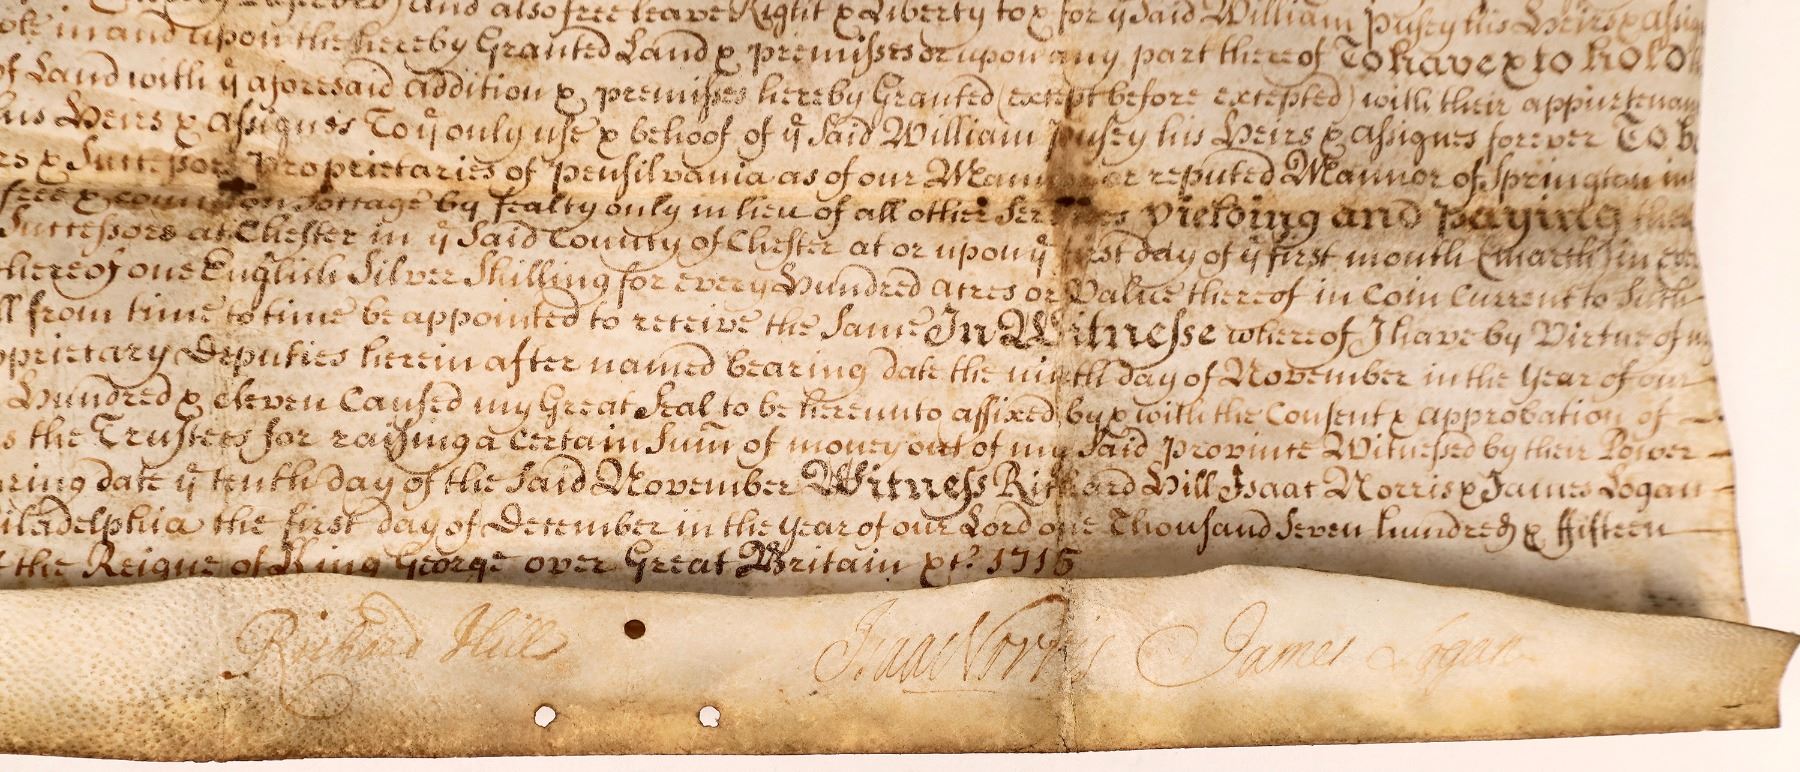 and also free leave Right & Liberty to & for yͤ Said William Pusey his Heirs & assig
in and upon the hereby Granted Land & premisses or upon any part thereof To have & to hold
of Land with yͤ aforesaid addition & premisses hereby Granted (except before excepted) with their appurtenan
his Heirs & assignes To yͤ only use & behoof of yͤ Said William Pusey his Heirs & assignes forever To b
rs & Successors Proprietaries of Pensilvania as of our Mannor or reputed Mannor of Springton in
free & common Soccage by fealty only in lieu of all other Services Yielding and Paying
Successors at Chester in yͤ Said County of Chester at or upon yͤ first day of yͤ first month (march) in ever
thereof one English Silver Shilling for every Hundred acres or Value thereof in Coin Current to Such
ll from time to time be appointed to receive the Same In Witnesse whereof I have by Virtue of m
oprietary Deputies herein after named bearing date the ninth day of November in the Year of our
Hundred & eleven Caused my Great Seal to be hereunto affixed by & with the Consent & approbation of
s the Trustees for raising a Certain Sum̃ of money out of my Said Province Witnessed by their Power
aring date yͤ tenth day of the Said November Witness Richard Hill Isaac Norris & James Logan
iladelphia the first day of December in the Year of our Lord one Thousand Seven hundred & ffifteen
the Reigne of King George over Great Britain &tͨ. 1715
Richard Hill Isaac Norris James Logan